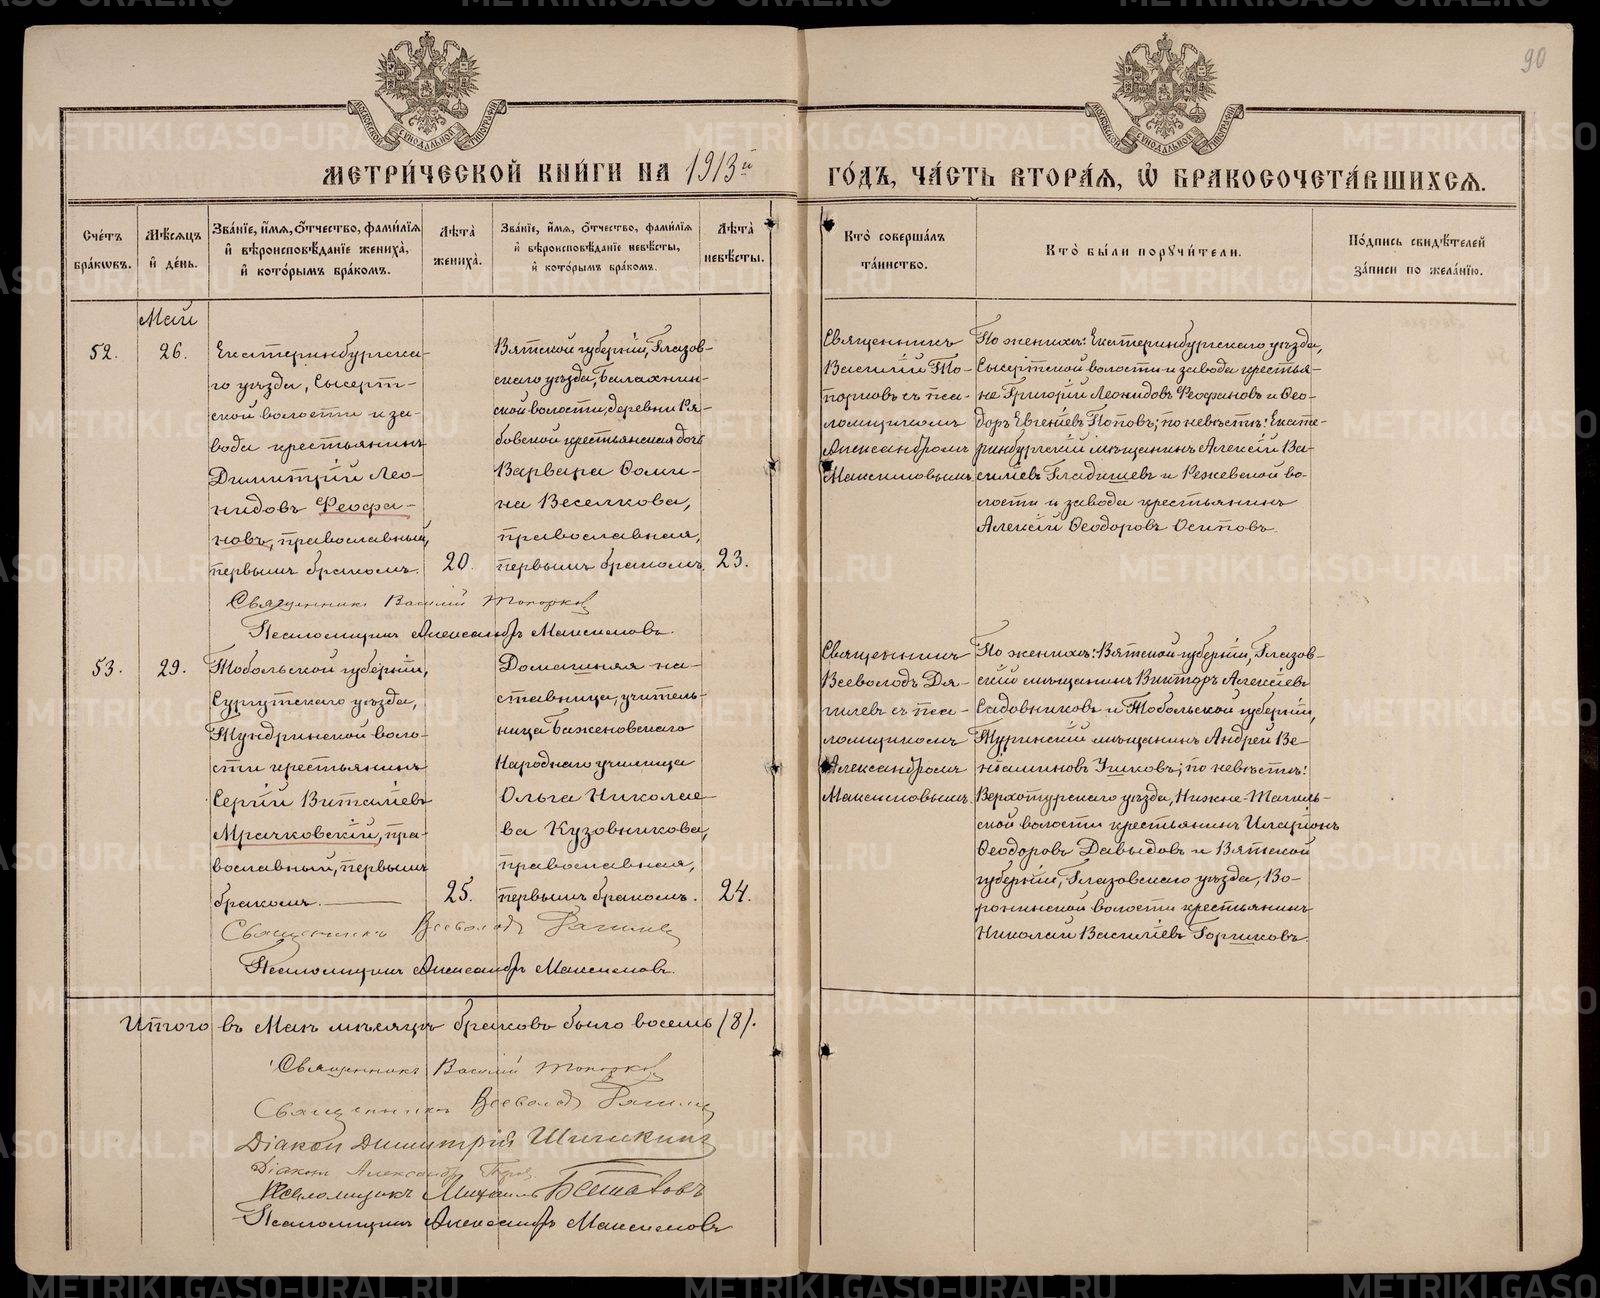 90
МЕТРИ́ЧЕСКОЙ КНИ́ГИ НА 1913й ГО́ДЪ, ЧА́СТЬ ВТОРА́Я, Ѽ БРАКОСОЧЕТА́ВШИХСЯ.
Сче́тъ бра́кѡвъ.
Мѣ́сяцъ и҆ де́нь.
Зва́нїе, и҆́мя, ѻ҆́тчество, фами́лїя и҆ вѣроисповѣ́данїе жениха̀, и҆ кото́рымъ бра́комъ.
Лѣ́та жениха̀.
Зва́нїе, и҆́мя, ѻ҆́тчество, фами́лїя и҆ вѣроисповѣ́данїе невѣ́сты, и҆ кото́рымъ бра́комъ.
Лѣ́та невѣ́сты.
Кто̀ соверша́лъ та́инство.
Кто̀ бы́ли поручи́тели.
По́дпись свидѣ́телей за́писи по жела́нїю.
Май
52.
26.
Екатеринбургска-
го уѣзда, Сысерт-
ской волости и за-
вода крестьянинъ
Димитрій Лео-
нидовъ Феофа-
новъ, православный,
первымъ бракомъ.
20.
Вятской губерніи, Глазов-
скаго уѣзда, Балахнин-
ской волости, деревни Ря-
бовской крестьянская дочь
Варвара Ѳоми-
на Веселкова,
православная,
первымъ бракомъ.
23.
Священникъ
Василій То-
порковъ съ пса-
ломщикомъ
Александромъ
Максимовымъ
По женихѣ: Екатеринбургскаго уѣзда,
Сысертской волости и завода крестья-
не Григорій Леонидовъ Феофановъ и Ѳео-
доръ Евгеніевъ Поповъ; по невѣстѣ: Екате-
ринбургскій мѣщанинъ Алексій Ва-
силіевъ Гладишевъ и Режевской во-
лости и завода крестьянинъ
Алексій Ѳеодоровъ Осиповъ.
Священникъ Василій Топорков
Псаломщикъ Александръ Максимовъ.
53.
29.
Тобольской губерніи,
Сургутскаго уѣзда,
Тундринской воло-
сти крестьянинъ
Сергій Виталіевъ
Мрачковскій, пра-
вославный, первымъ
бракомъ.
25.
Домашняя на-
ставница, учитель-
ница Баженовскаго
Народнаго училища
Ольга Николае-
ва Кузовникова,
православная,
первымъ бракомъ.
24.
Священникъ
Всеволодъ Дя-
гилевъ съ пса-
ломщикомъ
Александромъ
Максимовымъ.
По женихѣ: Вятской губерніи, Глазов-
скій мѣщанинъ Викторъ Алексіевъ
Садовниковъ и Тобольской губерніи,
Туринскій мѣщанинъ Андрей Ве-
ніаминовъ Ушковъ; по невѣстѣ:
Верхотурскаго уѣзда, Нижне-Тагиль-
ской волости крестьянинъ Иларіонъ
Ѳеодоровъ Давыдовъ и Вятской
губерніи, Глазовскаго уѣзда, Во-
ронинской волости крестьянинъ
Николай Василіевъ Горшковъ.
Священникъ Всеволодъ Дягилевъ
Псаломщикъ Александръ Максимовъ.
Итого въ Маѣ мѣсяцѣ браковъ было восемь (8).
Священникъ Василій Топорков
Священникъ Всеволодъ Дягилевъ
Діаконъ Димитрій Шишкинъ
Діаконъ Александръ
Псаломщикъ Михаилъ
Псаломщикъ Александръ Максимовъ
METRIKI.GASO-URAL.RU